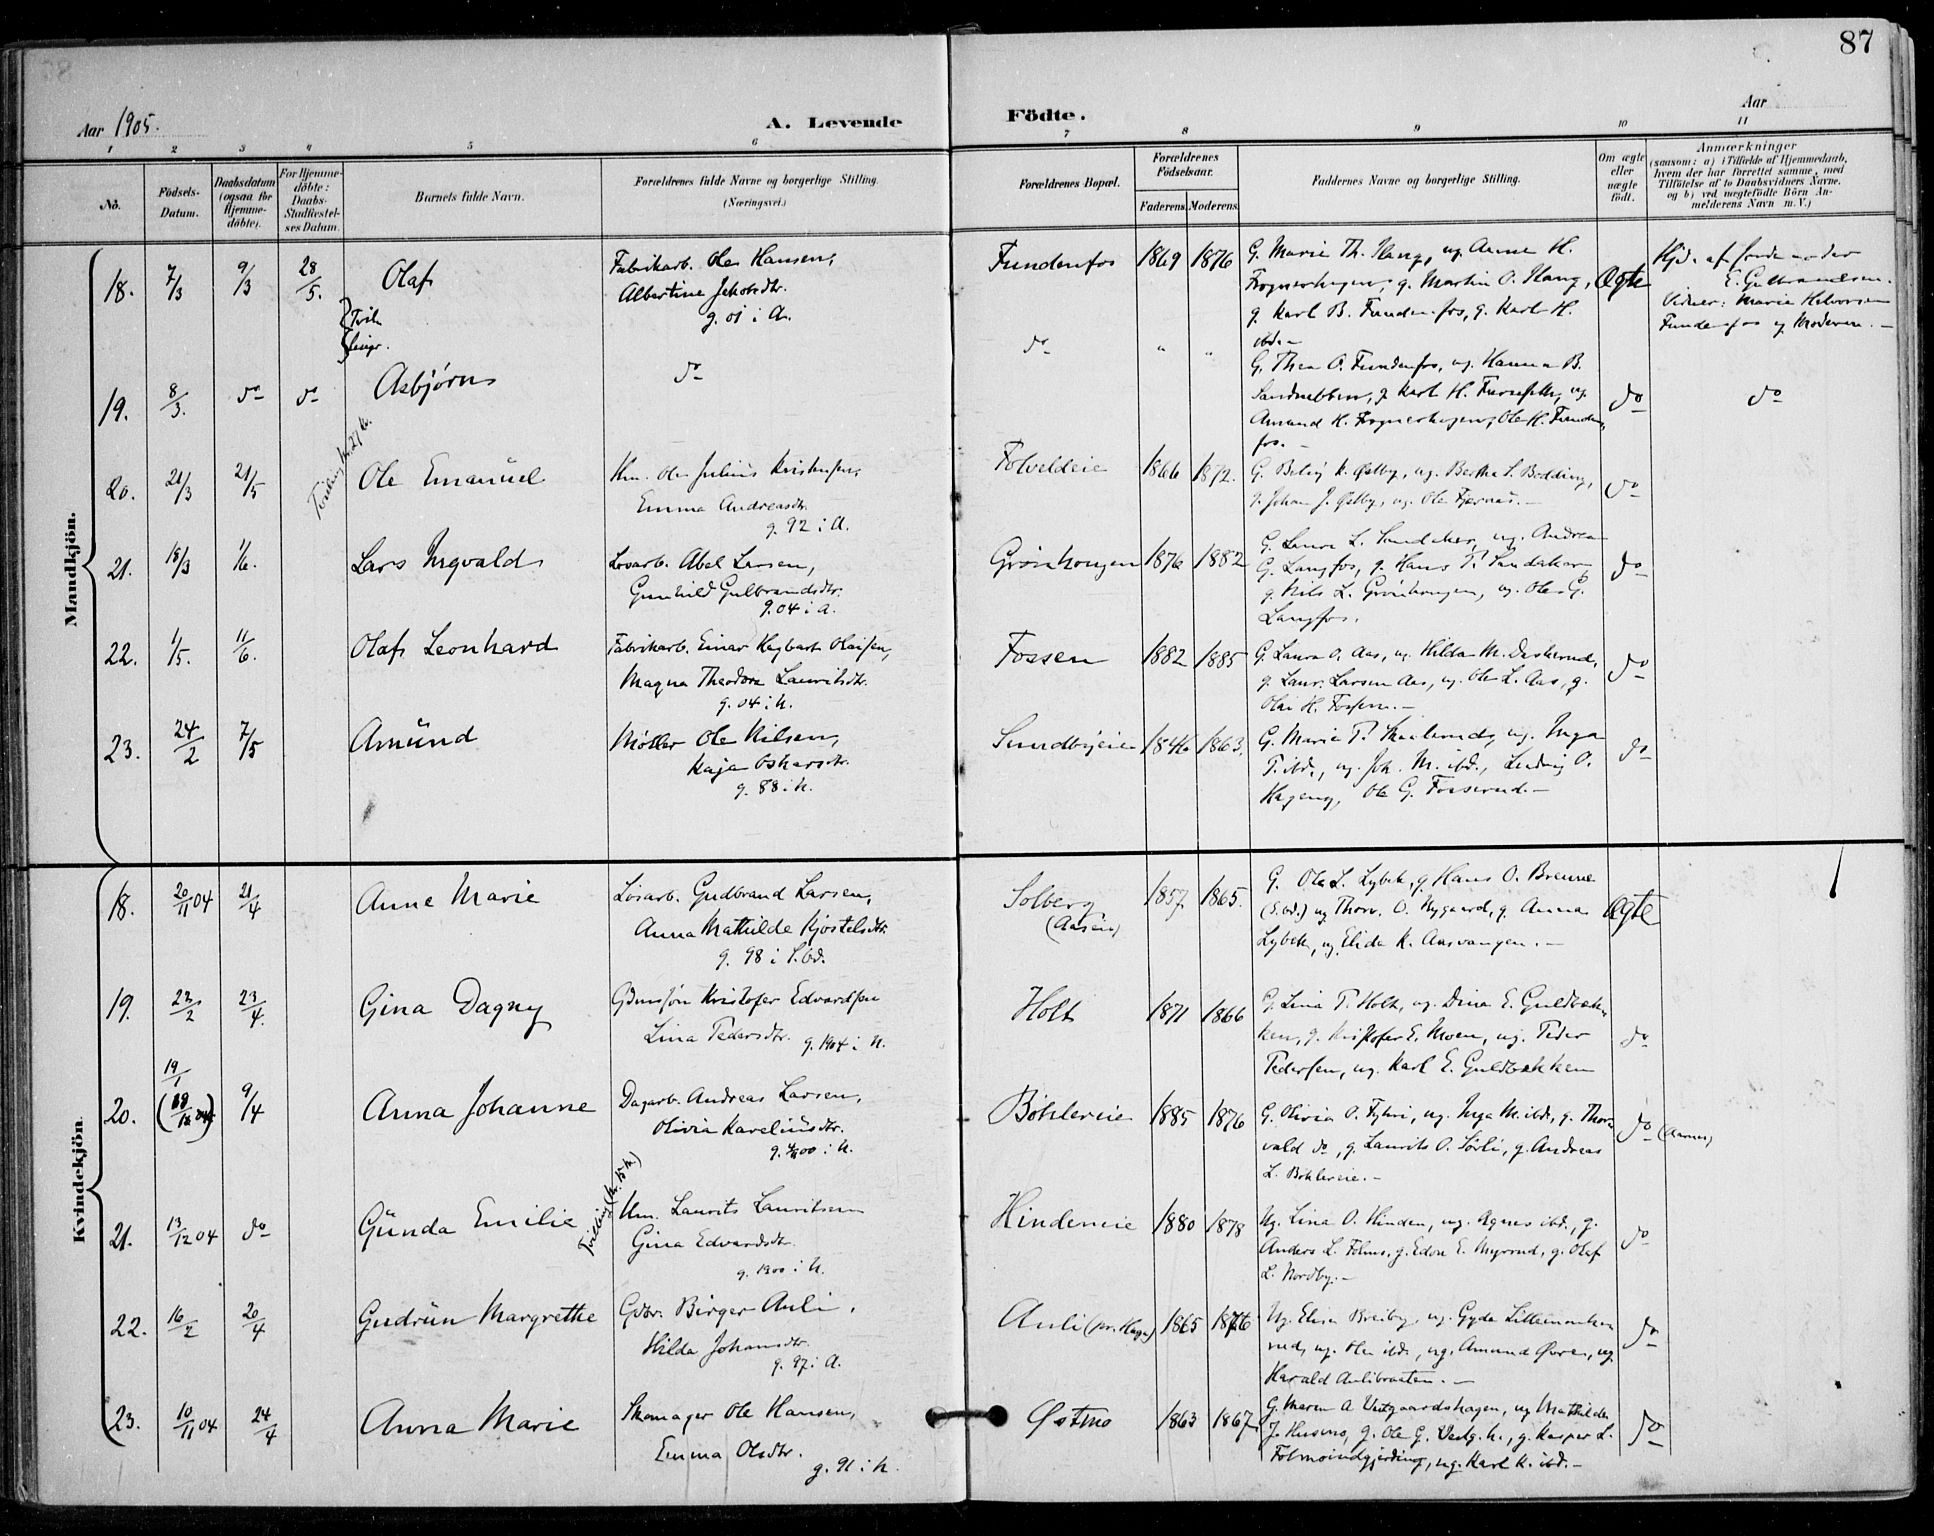 87
Aar 1905.
A. Levende
Fødte.
Aar
1 2 3 4 5 6 7 8 9 10 11
No.
Födsels-
Datum.
Daabsdatum
(ogsaa for
Hjemme-
döbte).
For Hjemme-
döbte:
Daabs-
Stadfæstel-
ses Datum.
Barnets fulde Navn.
Forældrenes fulde Navne og borgerlige Stilling.
(Næringsvei.)
Forældrenes Bopæl.
Forældrenes
Födselsaar.
Faderens.
Moderens.
Faddernes Navne og borgerlige Stilling.
Om ægte
eller
uægte
födt.
Anmærkninger
(saasom: a) i Tilfælde af Hjemmedaab,
hvem der har forrettet samme, med
Tilföielse af to Daabsvidners Navne,
og b) ved uegtefödte Börn An-
melderens Navn m. V.)
Mandkjön.
18. 7/3 9/3 28/5. Olaf
Fabrikarb. Ole Hansen,
Albertine Jakobsdtr.
g. 01 i A.
Fundenfos 1869 1876
G. Marie Th. Haug, ug. Anne H.
Frognerhagen, g. Martin O. Haug,
g. Karl B. Fundenfos, g. Karl H.
ibd.-
Ægte
Hjd. af
E. Gulbrandsen.
Vidner: Maria Halvorsen
Fundenfos og Moderen.-
19. 8/3. do do Asbjørn
do
do " "
G. Thea O. Fundenfos, ug. Hanna B.
Sandnebben, g. Karl H.
Amund H. Frognerhagen, Ole H. Funden-
fos.-
do
do
20. 21/3 21/5 Tvilling Ole Emanuel
Hm. Ole Julius Kristensen,
Emma Andreasdtr.
g. 92 i A.
1866 1872.
G. K. Østby, ug. Bertha S. Bødding,
g. Johan J. Østby, ug. Ole
do
21. 15/3 1/6. Lars Ingvald
Løsarb. Abel Larsen,
Gunhild Gulbrandsdtr.
g. 04 i A.
Grønhaugen 1876 1882
G. Laura L. Sandaker, ug. Andrea
G. Langfos, g. Hans P. Sandaker,
g. Nils L. Grønhaugen, ug. Ole G.
Langfos.
do
22. 1/5. 11/6. Olaf Leonhard
Fabrikarb. Einar Hagbart Olaisen,
Magna Theodora Lauritsdtr.
g. 04 i N.
Fossen 1882 1885
G. Laura O. Aas, ug. Hilda M.
g. Laur. Larsen Aas, ug. Ole L. Aas, g.
Olai H. Fossen.-
do
23. 24/2 7/5 Amund
Møller Ole Nilsen,
Kaja Oskarsdtr.
g. 88 i N.
Sundbyeie 1846 1863.
G. Marie P. ug. Inga
P. ibd., ug. Joh. M. ibd., Ludvig O.
Hagen, Ole G. Fosserud.-
do
Kvindekjön.
18. 20/11 04 21/4 Anne Marie
Løsarb. Gudbrand Larsen,
Anna Mathilde Kjøstelsdtr.
g. 98 i S.Od.
Solberg
(Aasen)
1857 1865.
G. Ole L. Lybek, g. Hans O. Brenne
(S.Od.) ug Thorv. O. Nygaard, g. Anna
Lybek, ug Elida K. Aasvangen.-
Ægte
19. 22/2 23/4. Gina Dagny
Gbmsøn Kristofer Edvardsen
Lina Pedersdtr. g. 1904 i N.
Holt 1871 1866
G. Lina P. Holt, ug. Dina E. Guldbak-
ken, g. Kristofer E. Moen, ug. Peder
Pedersen, ug. Karl E. Guldbakken
do
20. 19/1 9/4 Anna Johanne
Dagarb. Andreas Larsen,
Olivia Kareliusdtr.
Bøhlereie 1885 1876
G. Olivia O. ug. Inga M. ibd., g. Thor-
vald do, g. Laurits O. Sørli, g. Andreas
L. Bøhlereie.-
do (Aarnes)
21. 13/12 04 do Gunda Emilie Tvilling (Nr. 15 h)
Um. Laurits Lauritsen
Gina Edvardsdtr.
g. 1900 i N.
Hindeneie 1880 1878
Ug. Lina O. Hinden, ug. Agnes ibd., g.
Anders L. Folmo, g. Edon E. Myrrud, g. Olaf
L. Nordby.-
do
22. 16/2 20/4 Gudrun Margrethe
Gbr. Birger Auli,
Hilda Johansdtr.
g. 97 i A.
Auli 1865 1876
Ug. Elisa Breiby, ug. Gyda
ug. Ole ibd., ug. Amund Øvre, ug.
Harald Aulibraaten.-
do
23. 10/11 04 24/4 Anna Marie
Skomager Ole Hansen,
Emma Olsdtr.
g. 91 i N.
Østmo 1863 1867
G. Maren A. Vestgaardshagen, ug Mathilde
J. Husmo, g. Ole G. Vestg.h., g. Kasper L.
Folmoindgjerding, ug. Karl K. ibd.-
do